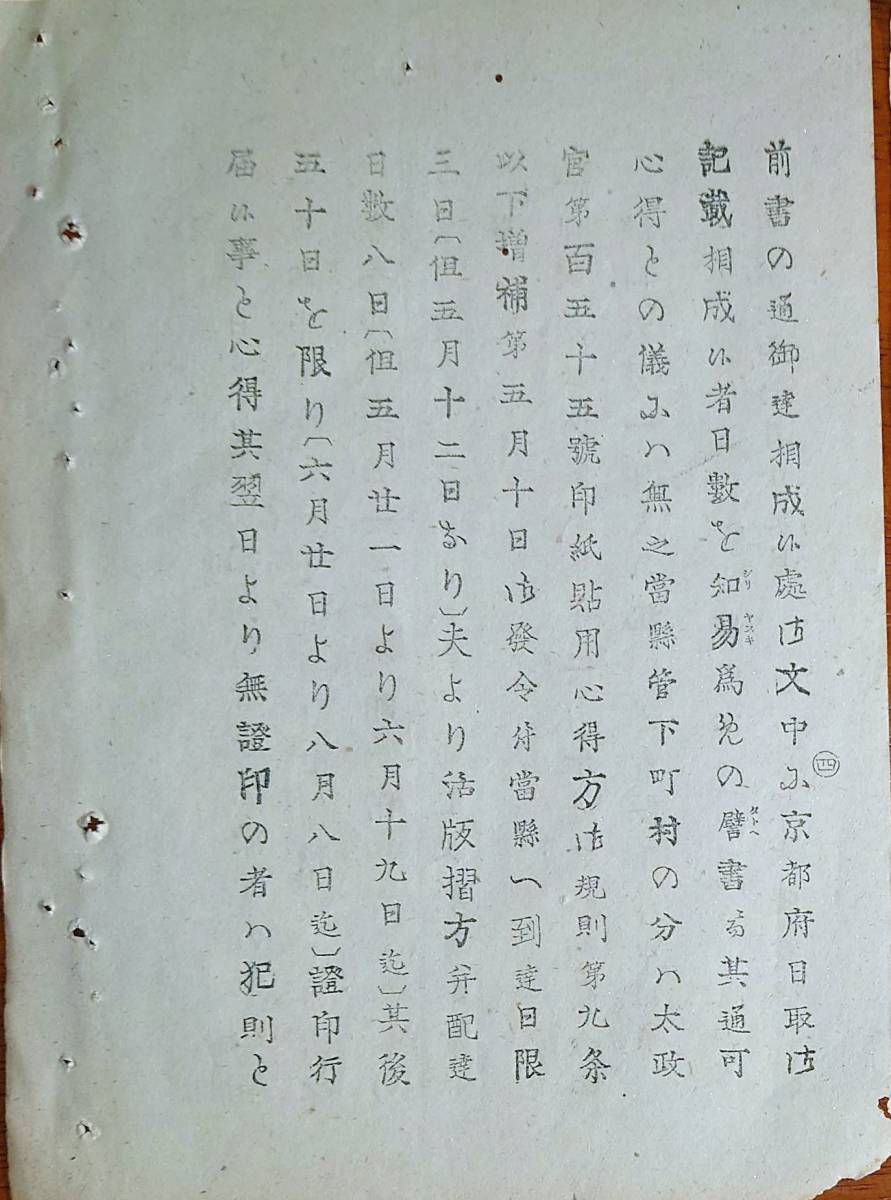 前書の通御達相成候處御文中に京都府日取御
記載相成候者日數を知易爲めの譬書而其通可
シリ ヤスキ タトヘ
心得との儀にハ無之當縣管下町村の分ハ太政
官第百五十五號印紙貼用心得方御規則第九条
以下増補第五月十日御發令付當縣へ到達日限
三日〔但五月十二日なり〕夫より活版摺方并配達
日數八日〔但五月廿一日より六月十九日迄〕其後
五十日を限り〔六月廿日より八月八日迄〕證印行
届候事と心得其翌日より無證印の者ハ犯則と
四